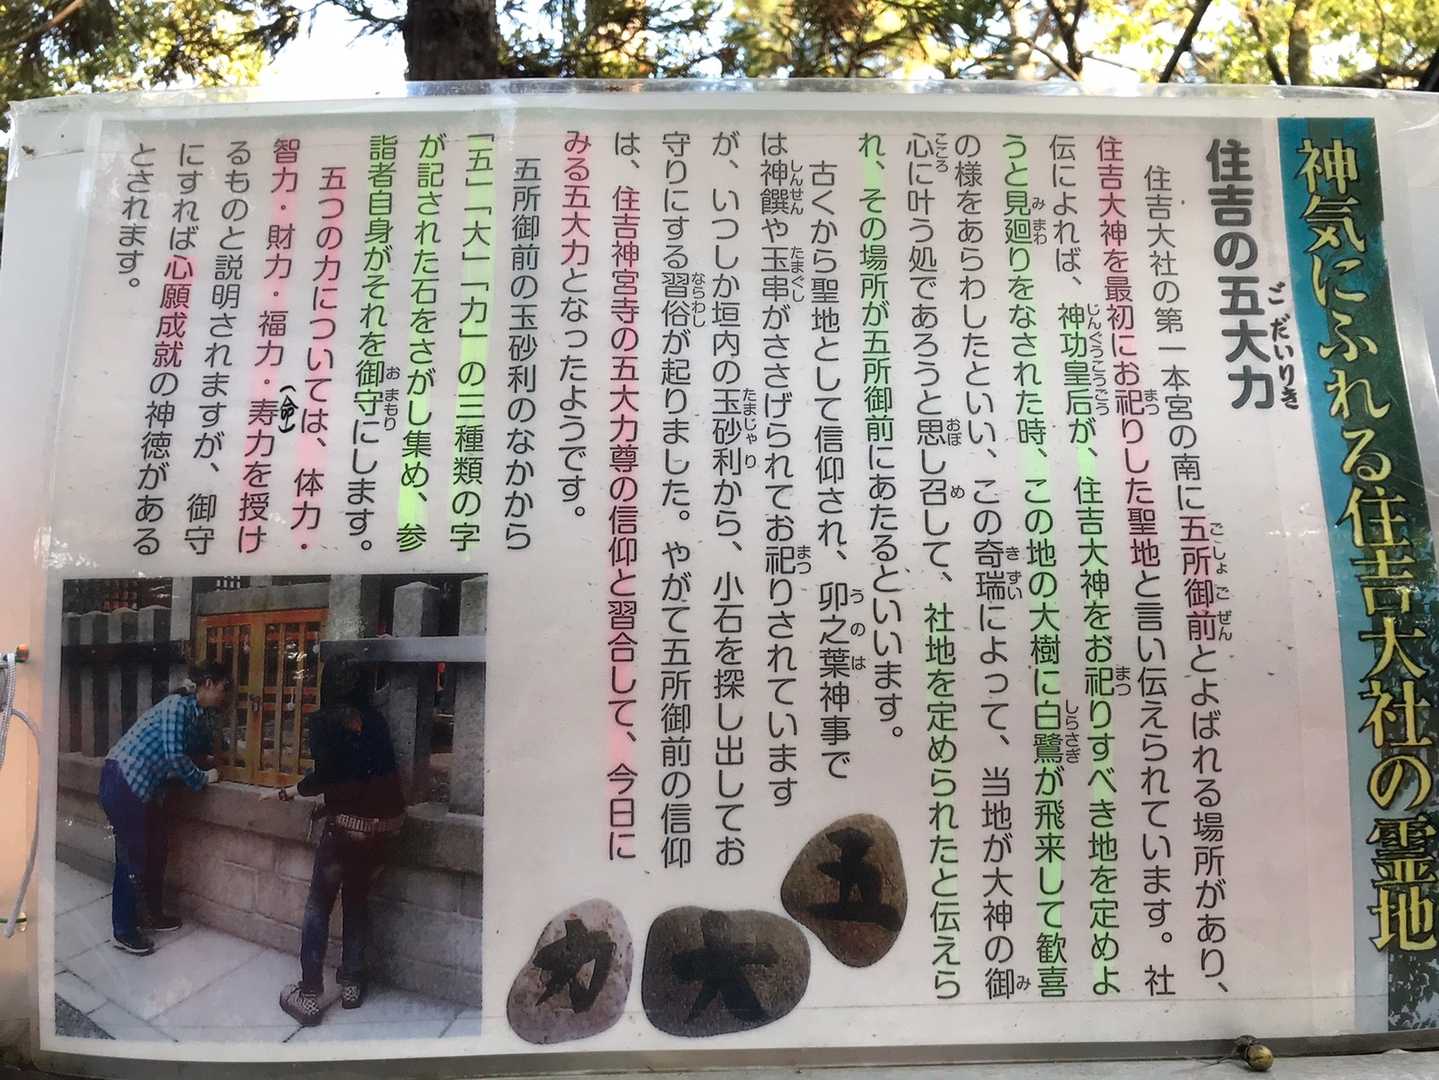 神気にふれる住吉大社の霊地
住吉の五大力
ごだいりき
住吉大社の第一本宮の南に五所御前とよばれる場所があり、
ごしょごぜん
住吉大神を最初にお祀りした聖地と言い伝えられています。社
まつ
伝によれば、神功皇后が、住吉大神をお祀りすべき地を定めよ
じんぐうこうごう
まつ
うと見廻りをなされた時、この地の大樹に白鷺が飛来して歓喜
みまわ
しらさぎ
の様をあらわしたといい、この奇瑞によって、当地が大神の御
きずい
み
心に叶う処であろうと思し召して、社地を定められたと伝えら
こころ
おぼ
め
れ、その場所が五所御前にあたるといいます。
古くから聖地として信仰され、卯之葉神事で
うのは
は神饌や玉串がささげられてお祀りされています
しんせん
たまぐし
まつ
が、いつしか垣内の玉砂利から、小石を探し出してお
たまじゃり
守りにする習俗が起りました。やがて五所御前の信仰
ならわし
は、住吉神宮寺の五大力尊の信仰と習合して、今日に
みる五大力となったようです。
五所御前の玉砂利のなかから
「五」「大」「力」の三種類の字
が記された石をさがし集め、参
詣者自身がそれを御守にします。
おまもり
五つの力については、体力・
智力・財力・福力・寿力を授け
(命)
るものと説明されますが、御守
にすれば心願成就の神徳がある
とされます。
五
大
力